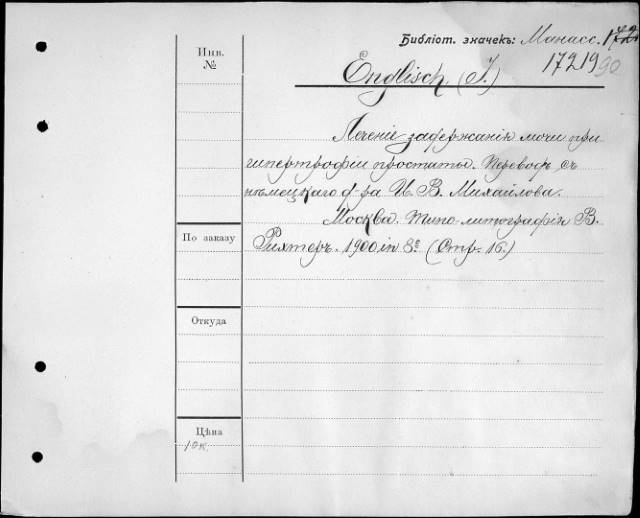 Библіот. значекъ: Манасс.
172190
Инв.
№
Englisch (J.)
Леченіе задержанія мочи при
гипертрофіи простаты. Переводъ съ
нѣмецкаго д-ра И. В. Михайлова.
Москва. Типо-литографія В.
По заказу
Рихтеръ. 1900 in 8º (Стр. 16.)
Откуда
Цѣна
10 к.